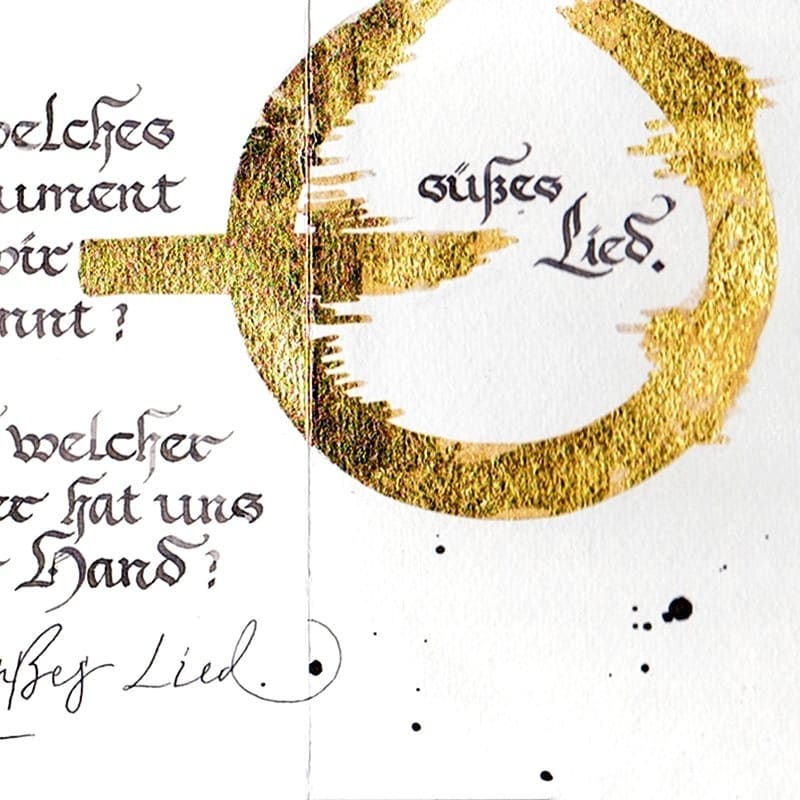 welches
ument
wir
nnt ?
welcher
er hat uns
Hand ?
üßes Lied.
süßes
Lied.